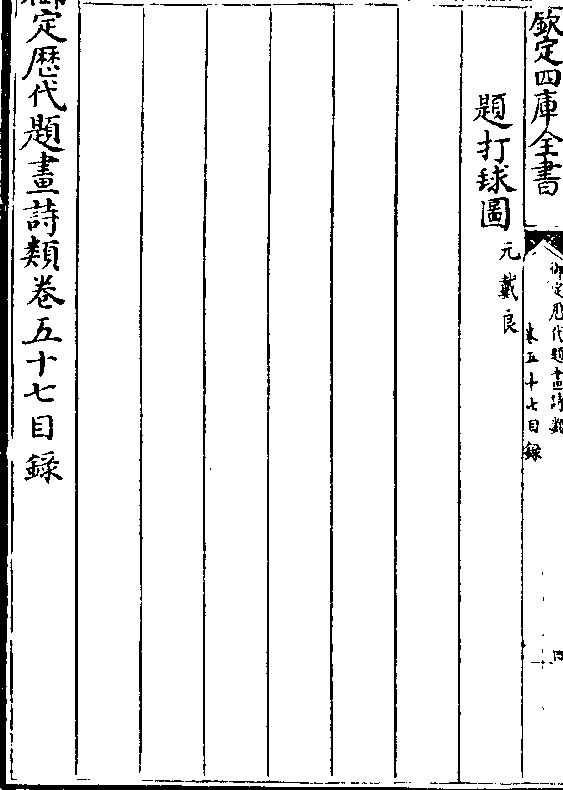 欽定四庫全書
御定歷代題畫詩類
卷五十七目録
四
題打毬圖
元戴良
御定歷代題畫詩類卷五十七目録